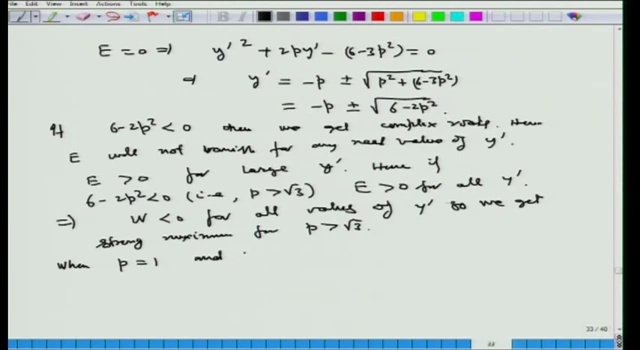 File Edit View Insert Actions Tools Help
E = 0 ⇒ y'² + 2py' − (6−3p²) = 0
⇒ y' = −p ± √(p² + (6−3p²))
= −p ± √(6−2p²)
If 6−2p² < 0 then we get complex roots. Hence
E will not vanish for any real value of y'.
E > 0 for large y'. Hence if
6−2p² < 0 (i.e., p > √3) E > 0 for all y'.
⇒) W < 0 for all value of y' so we get
strong maximum for p > √3.
when p = 1 and
33 / 40
33